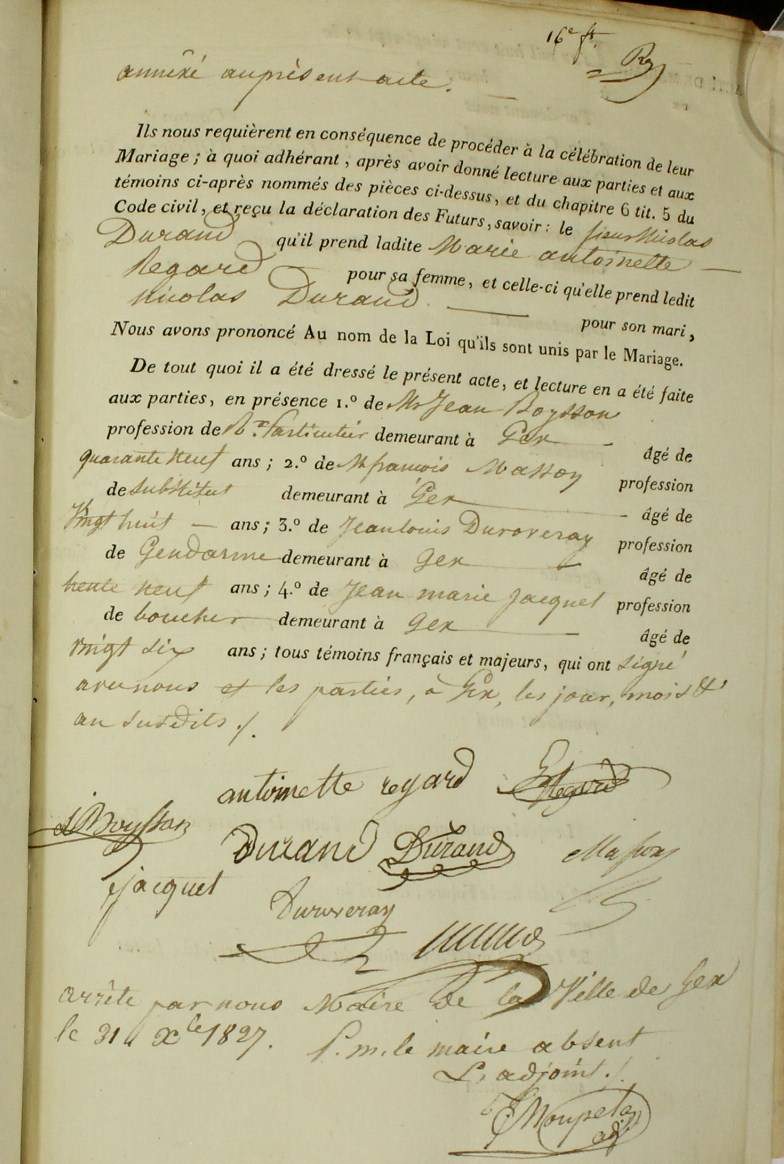 16e ft.
annéxé au présent acte.
Ils nous requièrent en conséquence de procéder à la célébration de leur
Mariage ; à quoi adhérant , après avoir donné lecture aux parties et aux
témoins ci-après nommés des pièces ci-dessus, et du chapitre 6 tit. 5 du
Code civil, et reçu la déclaration des Futurs, savoir: le sieur Nicolas
Durand qu'il prend ladite Marie antoinette
Regard pour sa femme, et celle-ci qu'elle prend ledit
Nicolas Durand. pour son mari,
Nous avons prononcé Au nom de la Loi qu'ils sont unis par le Mariage.
De tout quoi il a été dressé le présent acte, et lecture en a été faite
aux parties, en présence 1.º de Mr Jean Boysson
profession de Particulier demeurant à Gex âgé de
quarante neuf ans ; 2.º de Mr francois Masson profession
de substitut demeurant à Gex âgé de
vingt huit ans ; 3.º de Jean louis Duroveray profession
de Gendarme demeurant à Gex âgé de
trente neuf ans ; 4.º de Jean marie Jacquet profession
de boucher demeurant à Gex âgé de
vingt six ans ; tous témoins français et majeurs, qui ont signé
avec nous et les parties, à Gex, les jour, mois &
an susdits ./.
antoinette regard Regard
Boysson
Durand Durand Masson
Jacquet
Duroveray
arrêté par nous Maire de la Ville de Gex
le 31 Xbre 1827. P. m. le maire absent
L. adjoint ./.
adj